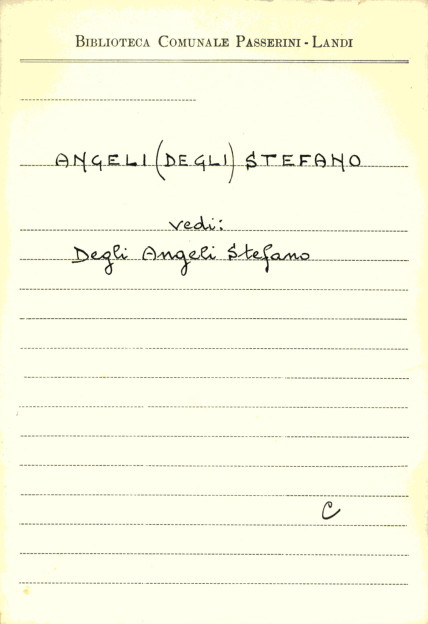 BIBLIOTECA COMUNALE PASSERINI - LANDI
ANGELI (DEGLI) STEFANO
vedi:
Degli Angeli Stefano
C